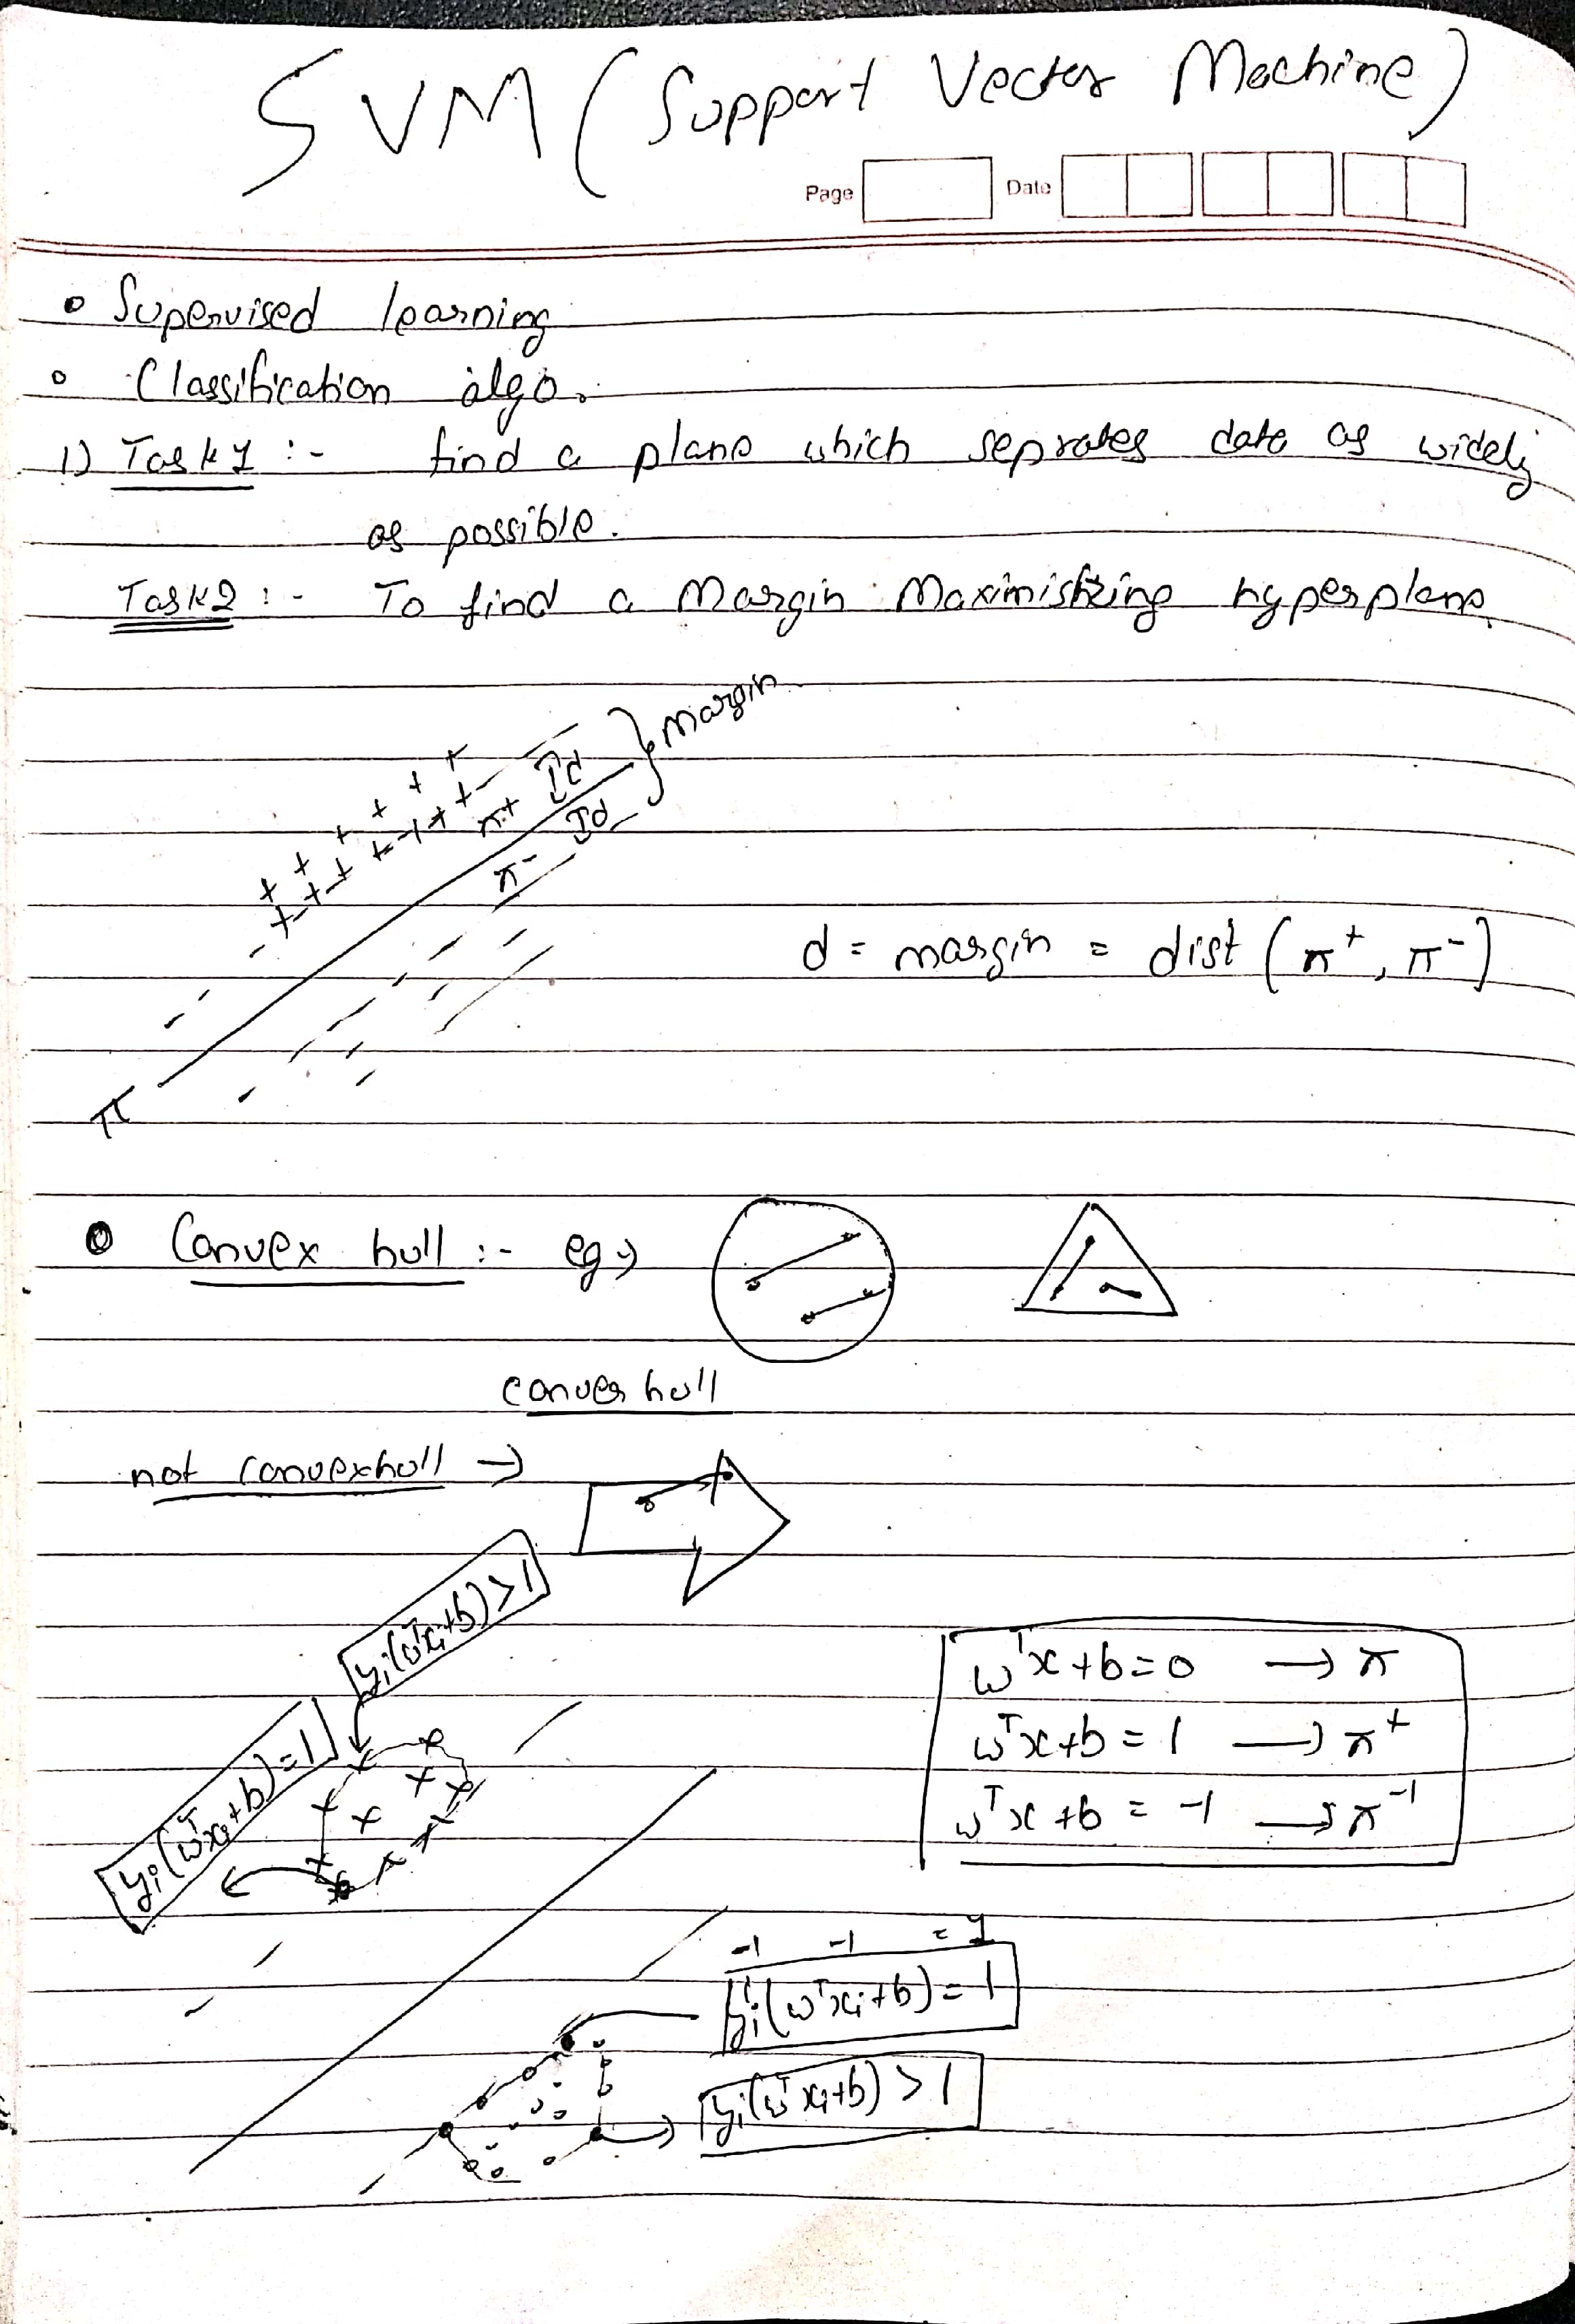 SVM (Support Vector Machine)
Page Date
• Supervised learning
• Classification algo.
1) Task 1 :- find a plane which seprates data as widely
as possible.
Task 2 :- To find a Margin Maximishzing hyperplane.
} margin
d
π+
d
π-
d = margin = dist (π+, π-)
π
• Convex hull :- eg →
convex hull
not convexhull →
yi(wᵀxi+b) > 1
wᵀx+b = 0 → π
yi(wᵀxi+b) = 1
wᵀx+b = 1 → π+
wᵀx+b = -1 → π-1
-1 -1 = 1
yi(wᵀxi+b) = 1
yi(wᵀxi+b) > 1